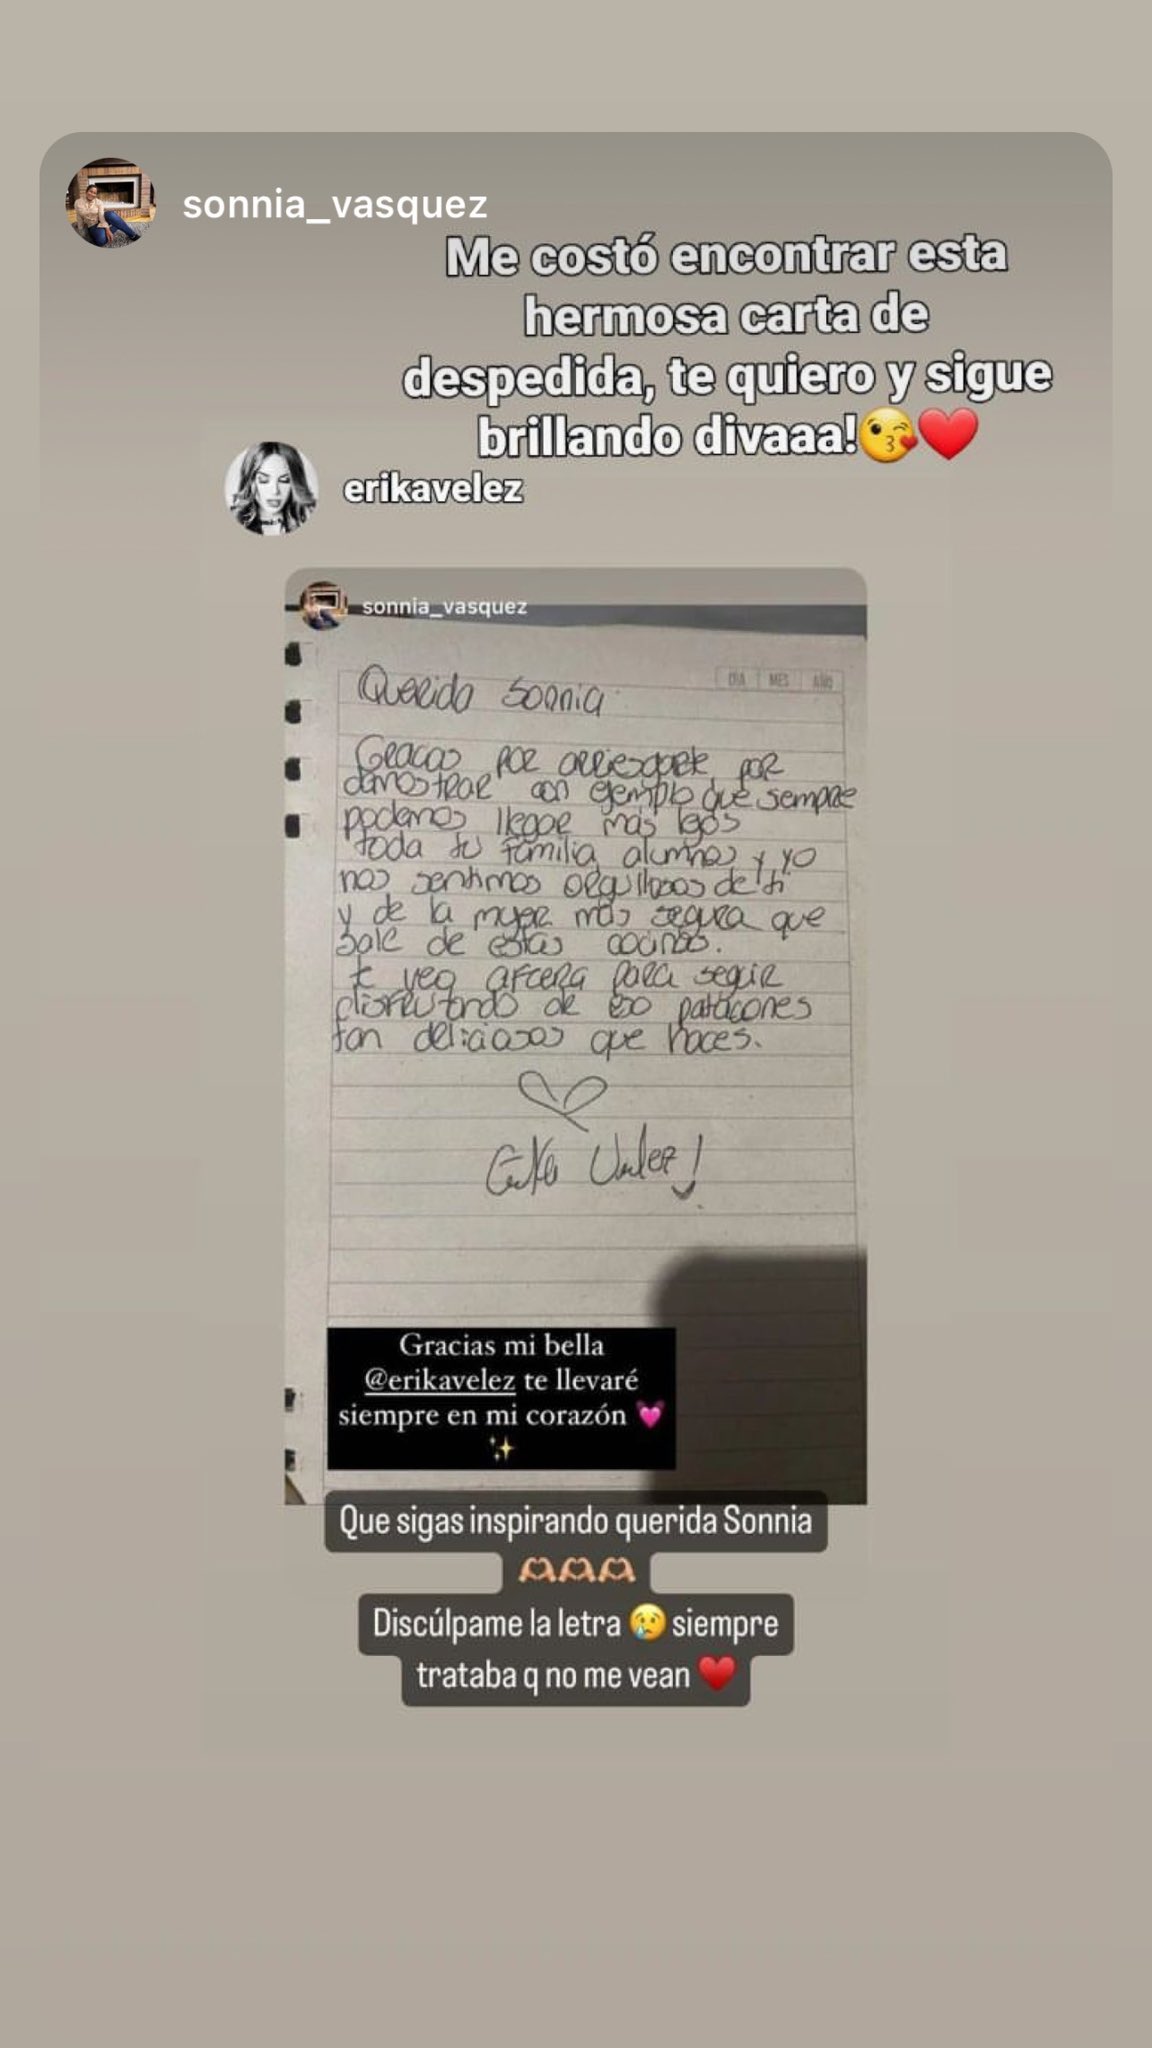 sonnia_vasquez
Me costó encontrar esta
hermosa carta de
despedida, te quiero y sigue
brillando divaaa!😘❤️
erikavelez
sonnia_vasquez
DÍA MES AÑO
Querida Sonnia
Gracias por arriesgarte, por
demostrar con ejemplo que siempre
podemos llegar más lejos
toda tu familia, alumnos y yo
nos sentimos orgullosos de ti
y de la mujer más segura que
sale de estas cocinas.
te veo afuera para seguir
disfrutando de eso patacones
tan deliciosos que haces.
Erika Velez!
Gracias mi bella
@erikavelez te llevaré
siempre en mi corazón 💓
✨
Que sigas inspirando querida Sonnia
🫶🏼🫶🏼🫶🏼
Discúlpame la letra 😢 siempre
trataba q no me vean ❤️